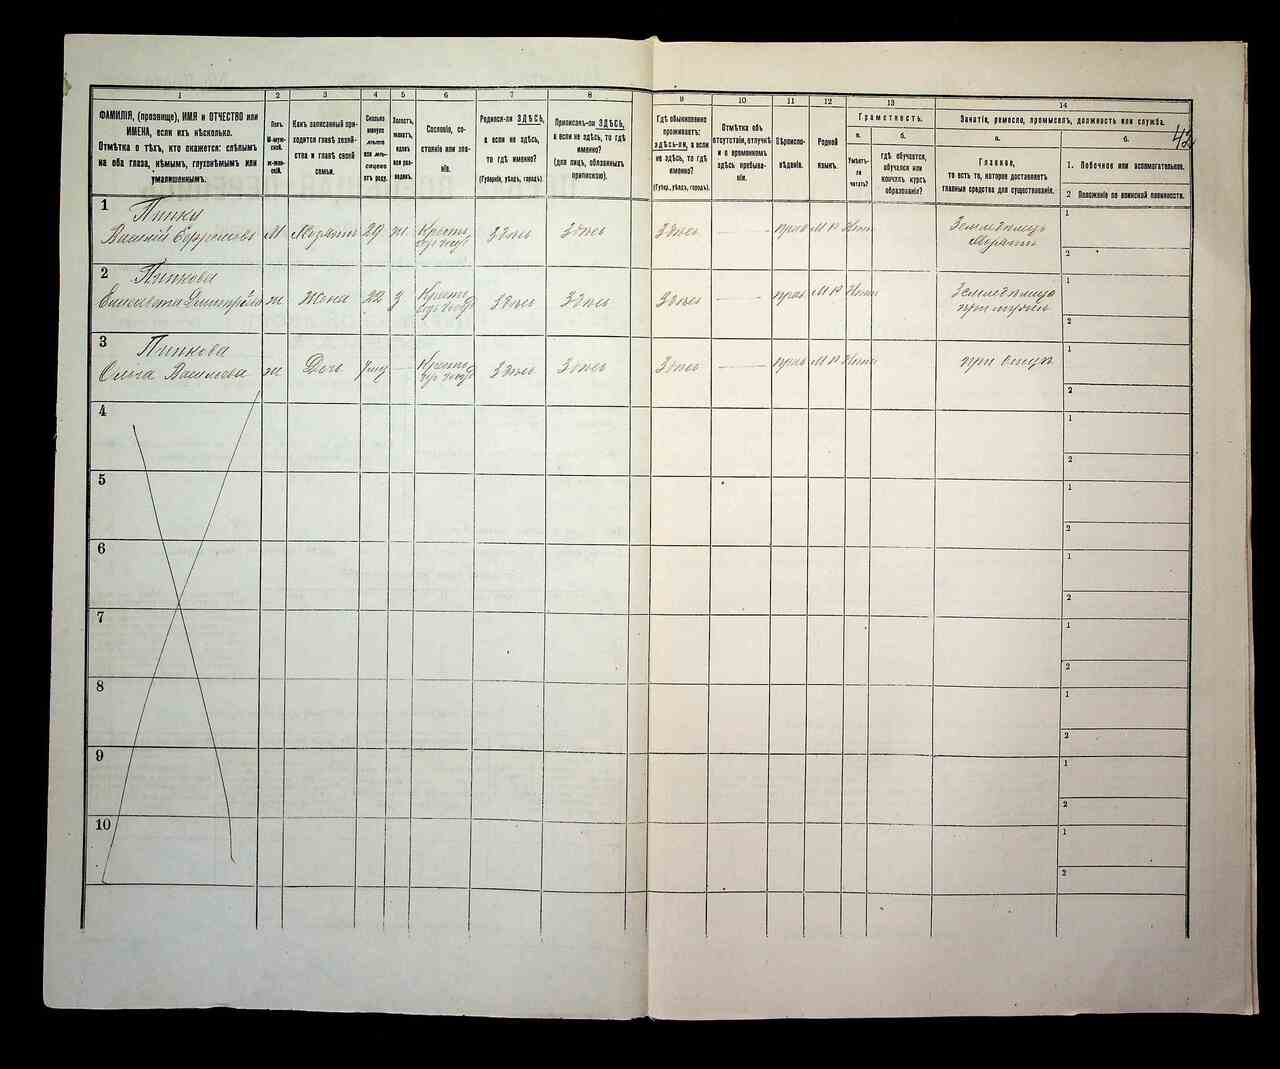 42
1
2
3
4
5
6
7
8
9
10
11
12
13
14
ФАМИЛІЯ, (прозвище), ИМЯ и ОТЧЕСТВО или
ИМЕНА, если ихъ нѣсколько.
Отмѣтка о тѣхъ, кто окажется: слѣпымъ
на оба глаза, нѣмымъ, глухонѣмымъ или
умалишеннымъ.
Полъ.
М-муж-
ской.
Ж-жен-
скій.
Какъ записанный при-
ходится главѣ хозяй-
ства и главѣ своей
семьи.
Сколько
минуло
лѣтъ
или мѣ-
сяцевъ
отъ роду.
Холостъ,
женатъ,
вдовъ
или раз-
веденъ.
Сословіе, со-
стояніе или зва-
ніе.
Родился-ли ЗДѢСЬ,
а если не здѣсь,
то гдѣ именно?
(Губернія, уѣздъ, городъ).
Приписанъ-ли ЗДѢСЬ,
а если не здѣсь, то гдѣ
именно?
(для лицъ, обязанныхъ
припискою).
Гдѣ обыкновенно
проживаетъ:
здѣсь-ли, а если
не здѣсь, то гдѣ
именно?
(Губер., уѣздъ, городъ).
Отмѣтка объ
отсутствіи, отлучкѣ
и о временномъ
здѣсь пребыва-
ніи.
Вѣроиспо-
вѣданіе.
Родной
языкъ.
Грамотность.
а.
Умѣетъ-
ли
читать?
б.
гдѣ обучается,
обучался или
кончилъ курсъ
образованія?
Занятіе, ремесло, промыселъ, должность или служба.
а.
Главное,
то есть то, которое доставляетъ
главныя средства для существованія.
б.
1. Побочное или вспомогательное.
2 Положеніе по воинской повинности.
1
Василій
М
29
ж
Крест
Здѣсь
Здѣсь
Здѣсь
прав
1
2
2
Пипкова
Елисавета Дмитріева
ж
Жена
22
З
Крест
Здѣсь
Здѣсь
Здѣсь
прав
1
2
3
Пипкова
Ольга Васильева
ж
Дочь
Крест
Здѣсь
Здѣсь
Здѣсь
прав
при отцѣ
1
2
4
1
2
5
1
2
6
1
2
7
1
2
8
1
2
9
1
2
10
1
2